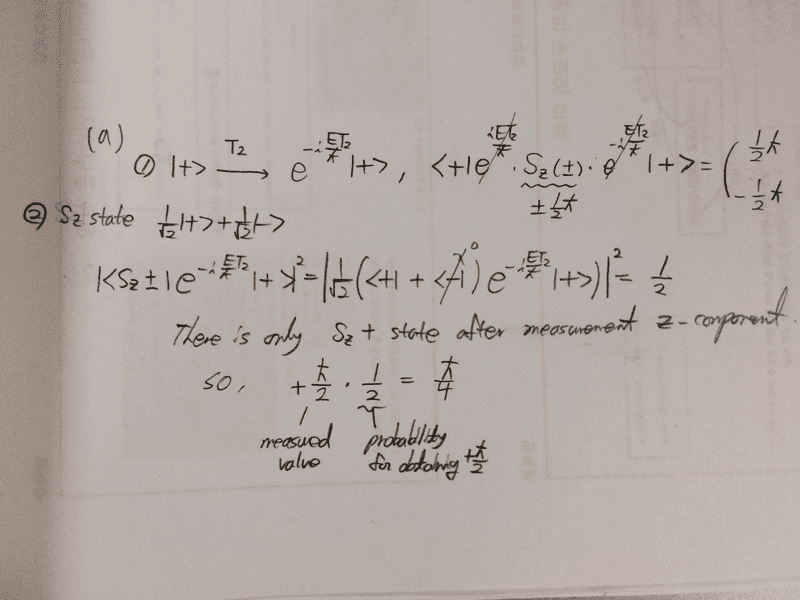 (a)
① |+> T₂→ e^{-i ET₂/ħ} |+>, <+| e^{iET₂/ħ} · S_z(±) · e^{-iET₂/ħ} |+> = ( ½ħ
± ½ħ -½ħ
② Sz state 1/√2 |+> + 1/√2 |->
|<Sz ± | e^{-i ET₂/ħ} |+>|² = | 1/√2 (<+| + <-|⁰) e^{-i ET₂/ħ} |+>)|² = 1/2
There is only Sz + state after measurement z-component.
so, + ħ/2 · 1/2 = ħ/4
measured probability
value for obtaining +ħ/2